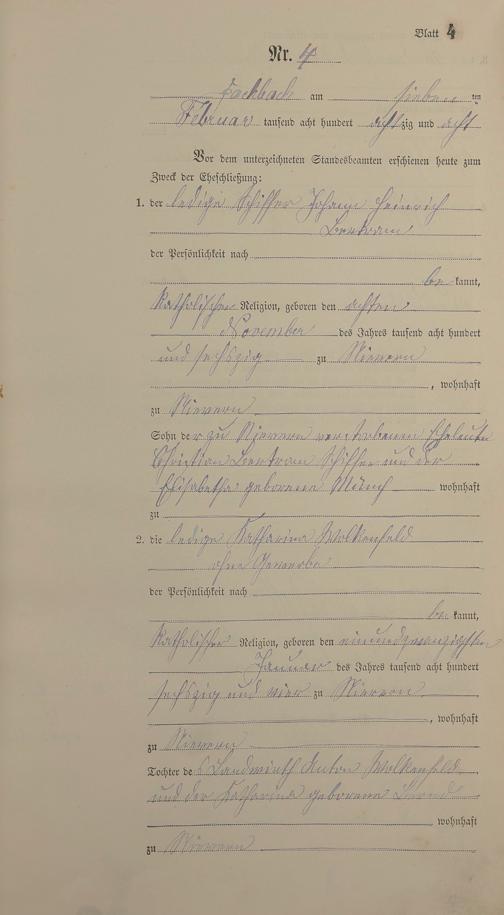 Blatt 4
Nr. 4
Fachbach am sieben ten
Februar tausend acht hundert achtzig und acht
Vor dem unterzeichneten Standesbeamten erschienen heute zum
Zweck der Eheschließung:
1. der ledige Schiffer Johann Heinrich
Bertram
der Persönlichkeit nach
be kannt,
katholischer Religion, geboren den achten
November des Jahres tausend acht hundert
und sechszig zu Nievern
, wohnhaft
zu Nievern
Sohn der zu Nievern verstorbenen Eheleute
Christian Bertram Schiffer und der
Elisabetha geborene Münch wohnhaft
zu
2. die ledige Katharina Wolkenfeld
ohne Gewerbe
der Persönlichkeit nach
be kannt,
katholischer Religion, geboren den einundzwanzigsten
Januar des Jahres tausend acht hundert
sechszig und vier zu Nievern
, wohnhaft
zu Nievern
Tochter des Landwirth Anton Wolkenfeld
und der Katharina geborene
wohnhaft
zu Nievern